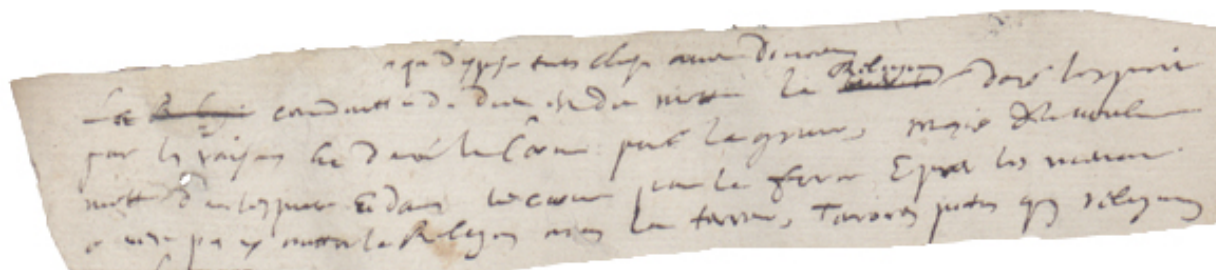 qui dispose toutes choses avec douceur
La conduitte de dieu est de mettre la Religion dans lesprit
par les raisons et dans le Coeur par la grace, mais de la vouloir
mettre dans lesprit et dans le coeur par la force et par les menaces
ce nest pas y mettre la Religion mais la terreur, Terrorem potius quam religionem